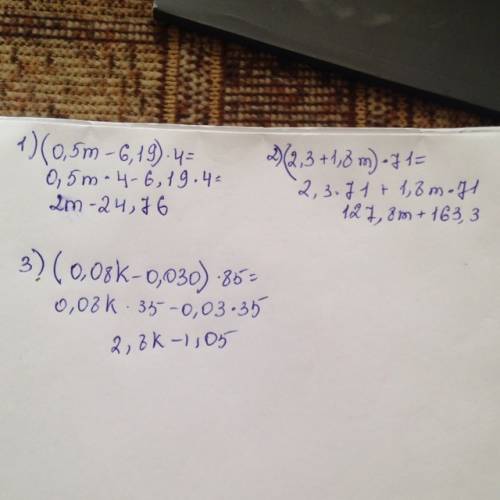 1) (0,5m - 6,19) · 4 =
0,5m · 4 - 6,19 · 4 =
2m - 24,76
2) (2,3 + 1,8m) · 71 =
2,3 · 71 + 1,8m · 71
127,8m + 163,3
3) (0,08k - 0,030) · 85 =
0,08k · 35 - 0,03 · 35
2,8k - 1,05